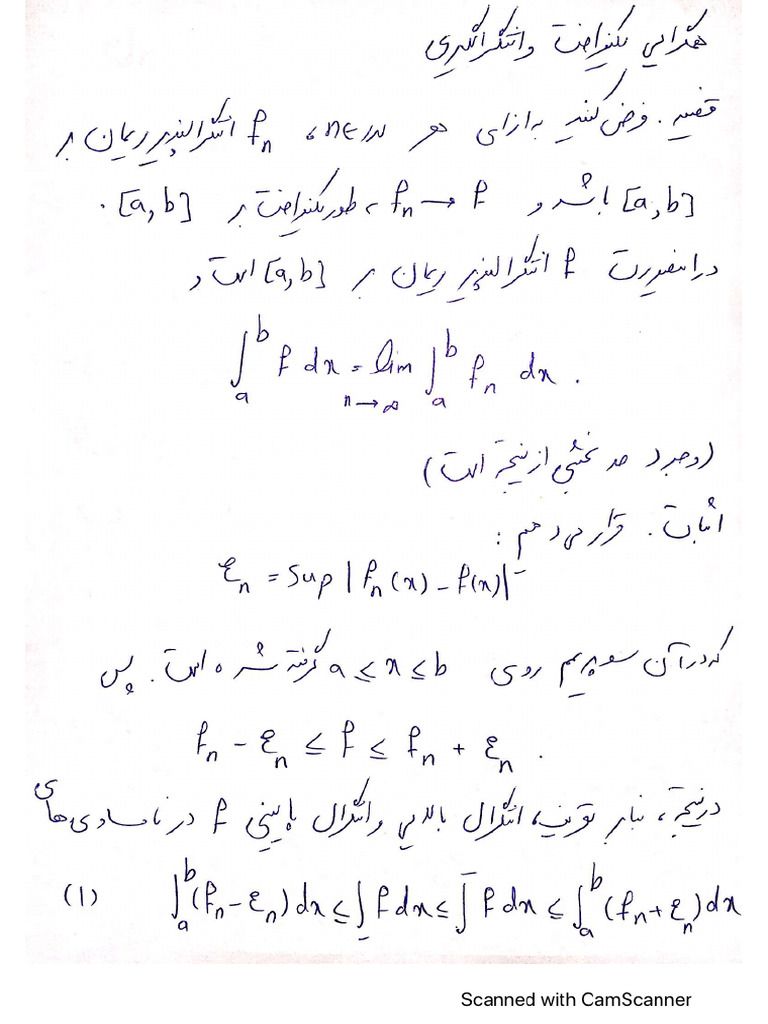 همگرایی یکنواخت و انتگرالگیری
قضیه. فرض کنید به ازای هر n∈ℕ، fₙ انتگرالپذیر ریمان بر
[a,b] باشد و fₙ → f به طور یکنواخت بر [a,b].
در اینصورت f انتگرالپذیر ریمان بر [a,b] است و
∫ₐᵇ f dx = lim_{n→∞} ∫ₐᵇ fₙ dx.
(وجود حد بخشی از نتیجه است)
اثبات. قرار می‌دهیم:
εₙ = Sup |fₙ(x) - f(x)|
که در آن سوپریمم روی a ≤ x ≤ b گرفته شده است. پس
fₙ - εₙ ≤ f ≤ fₙ + εₙ.
در نتیجه، بنابر تعریف، انتگرال بالایی و انتگرال پایینی f در نامساوی‌های
(1) ∫ₐᵇ (fₙ - εₙ) dx ≤ ∫̲ f dx ≤ ∫̅ f dx ≤ ∫ₐᵇ (fₙ + εₙ) dx
Scanned with CamScanner